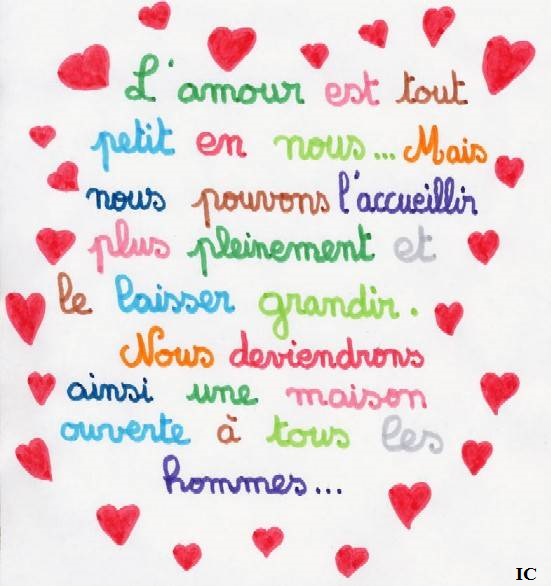 L'amour est tout
petit en nous... Mais
nous pouvons l'accueillir
plus pleinement et
le laisser grandir.
Nous deviendrons
ainsi une maison
ouverte à tous les
hommes...
IC